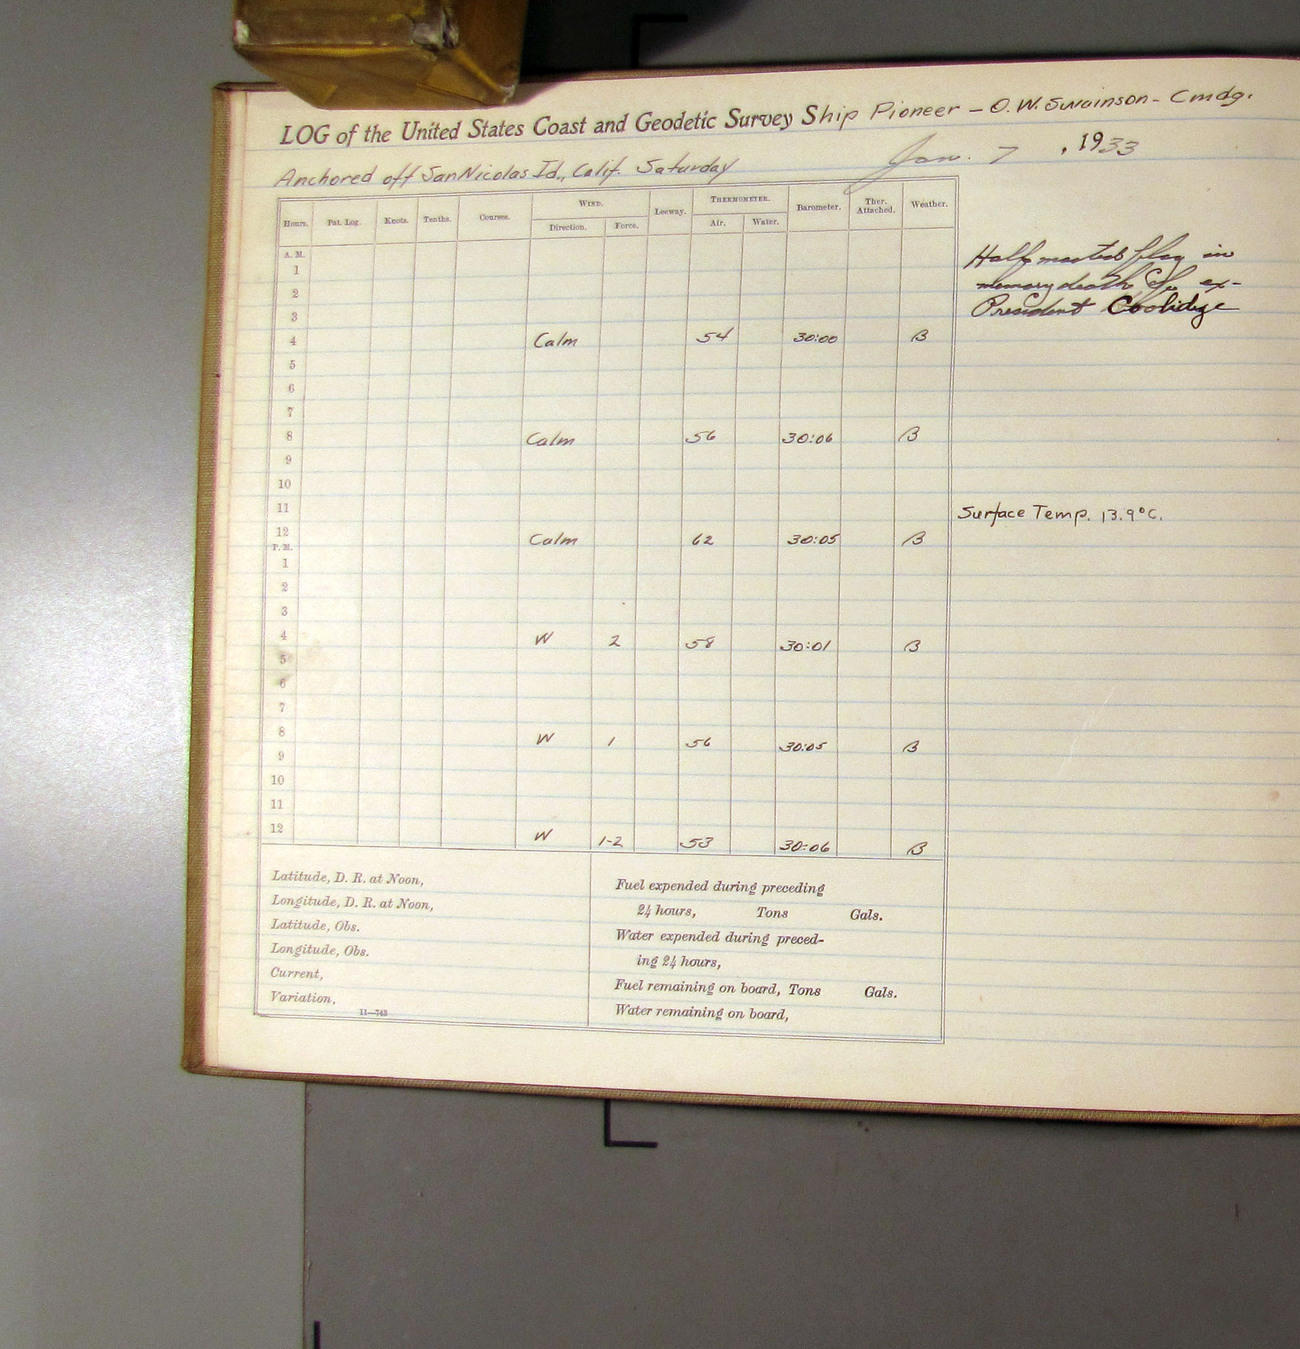 LOG of the United States Coast and Geodetic Survey Ship Pioneer – O. W. Swainson – Cmdg.
Anchored off San Nicolas Id., Calif. Saturday Jan. 7 , 1933
Hours. Pat. Log. Knots. Tenths. Courses. WIND. Leeway. THERMOMETER. Barometer. Ther. Attached. Weather.
Direction. Force. Air. Water.
A. M.
1 Half masted flag in
2 memory death of ex-
3 President Coolidge
4 Calm 54 30:00 B
5
6
7
8 Calm 56 30:06 B
9
10
11 Surface Temp. 13.9°C.
12 Calm 62 30:05 B
P. M.
1
2
3
4 W 2 58 30:01 B
5
6
7
8 W 1 56 30:05 B
9
10
11
12 W 1-2 53 30:06 B
Latitude, D. R. at Noon,
Longitude, D. R. at Noon,
Latitude, Obs.
Longitude, Obs.
Current,
Variation,
11—743
Fuel expended during preceding
24 hours, Tons Gals.
Water expended during preced-
ing 24 hours,
Fuel remaining on board, Tons Gals.
Water remaining on board,